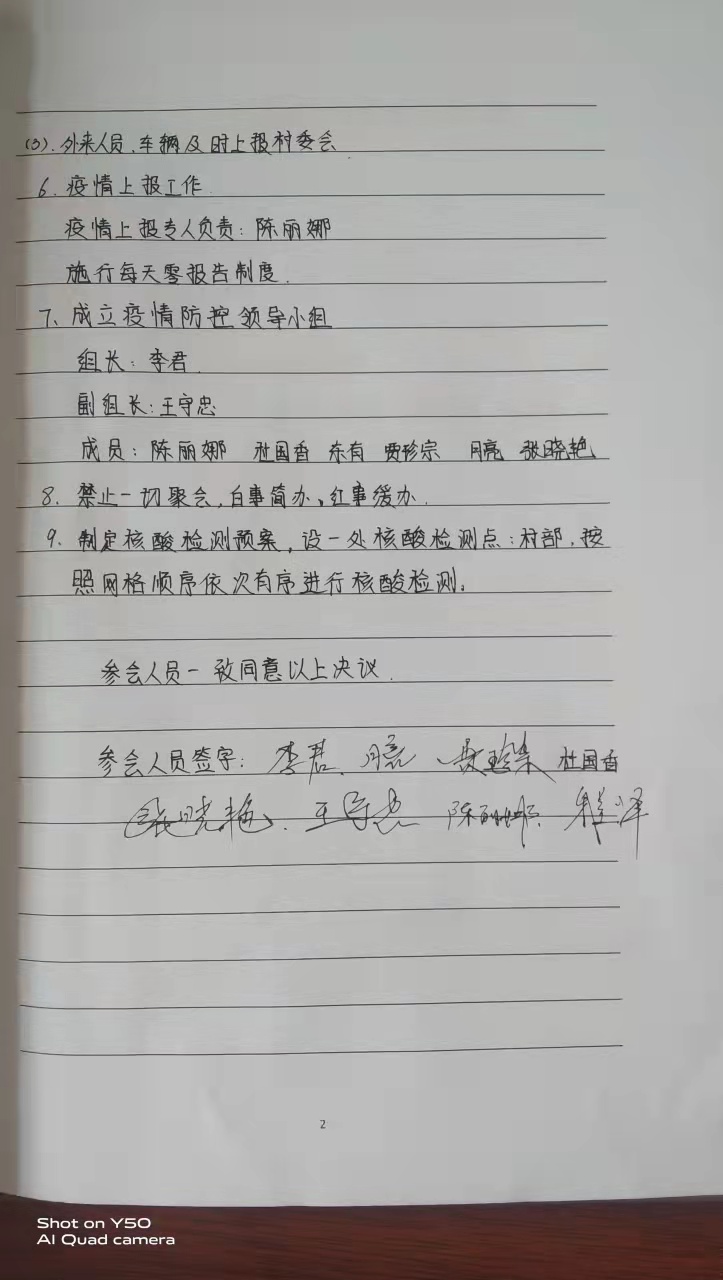 (3).外来人员、车辆及时上报村委会
6.疫情上报工作
疫情上报专人负责:陈丽娜
施行每天零报告制度.
7、成立疫情防控领导小组
组长:李君.
副组长:王守忠
成员:陈丽娜 杜国香 东有 贾珍宗 月亮 张晓艳
8.禁止一切聚会,白事简办,红事缓办.
9.制定核酸检测预案,设一处核酸检测点:村部,按
照网格顺序依次有序进行核酸检测。
参会人员一致同意以上决议.
参会人员签字:李君、月亮 贾珍宗 杜国香
张晓艳、王守忠 陈丽娜
2
Shot on Y50
AI Quad camera